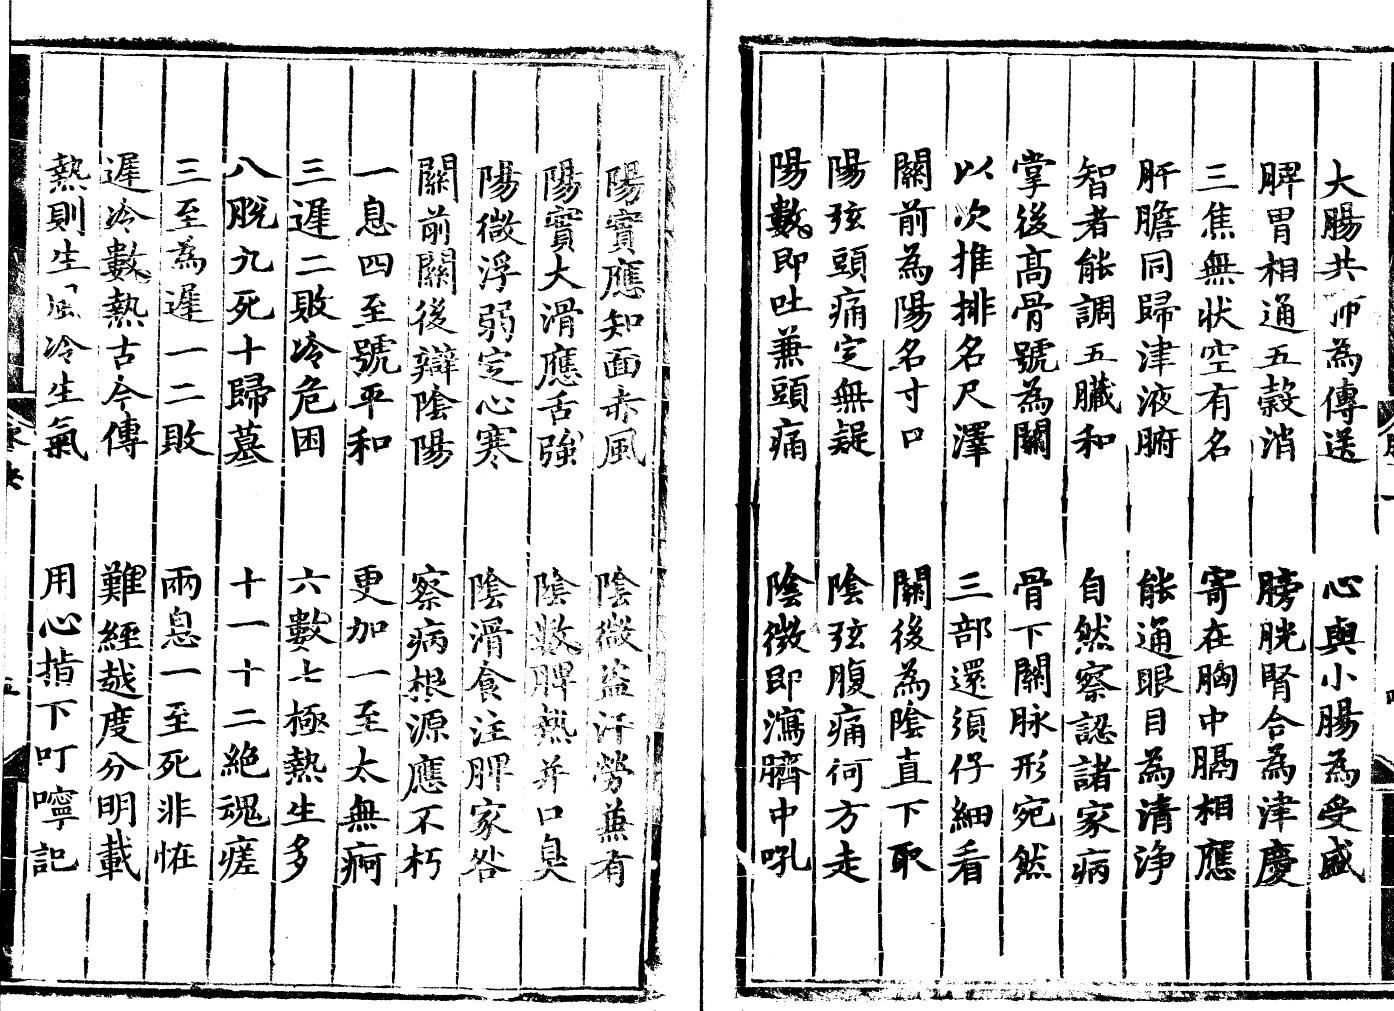 大腸共肺為傳送　心與小腸為受盛
脾胃相通五穀消　膀胱腎合為津慶
三焦無狀空有名　寄在胸中膈相應
肝膽同歸津液腑　能通眼目為清淨
智者能調五臟和　自然察認諸家病
掌後高骨號為關　骨下關脉形宛然
以次推排名尺澤　三部還須仔細看
關前為陽名寸口　關後為陰直下取
陽弦頭痛定無疑　陰弦腹痛何方走
陽數即吐兼頭痛　陰微即瀉臍中吼
陽實應知面赤風　陰微盜汗勞兼有
陽實大滑應舌強　陰數脾熱并口臭
陽微浮弱定心寒　陰滑食注脾家咎
關前關後辯陰陽　察病根源應不朽
一息四至號平和　更加一至太無痾
三遲二敗冷危困　六數七極熱生多
八脫九死十歸墓　十一十二絶魂瘥
三至為遲一二敗　兩息一至死非恠
遲冷數熱古今傳　難經越度分明載
熱則生風冷生氣　用心指下叮嚀記